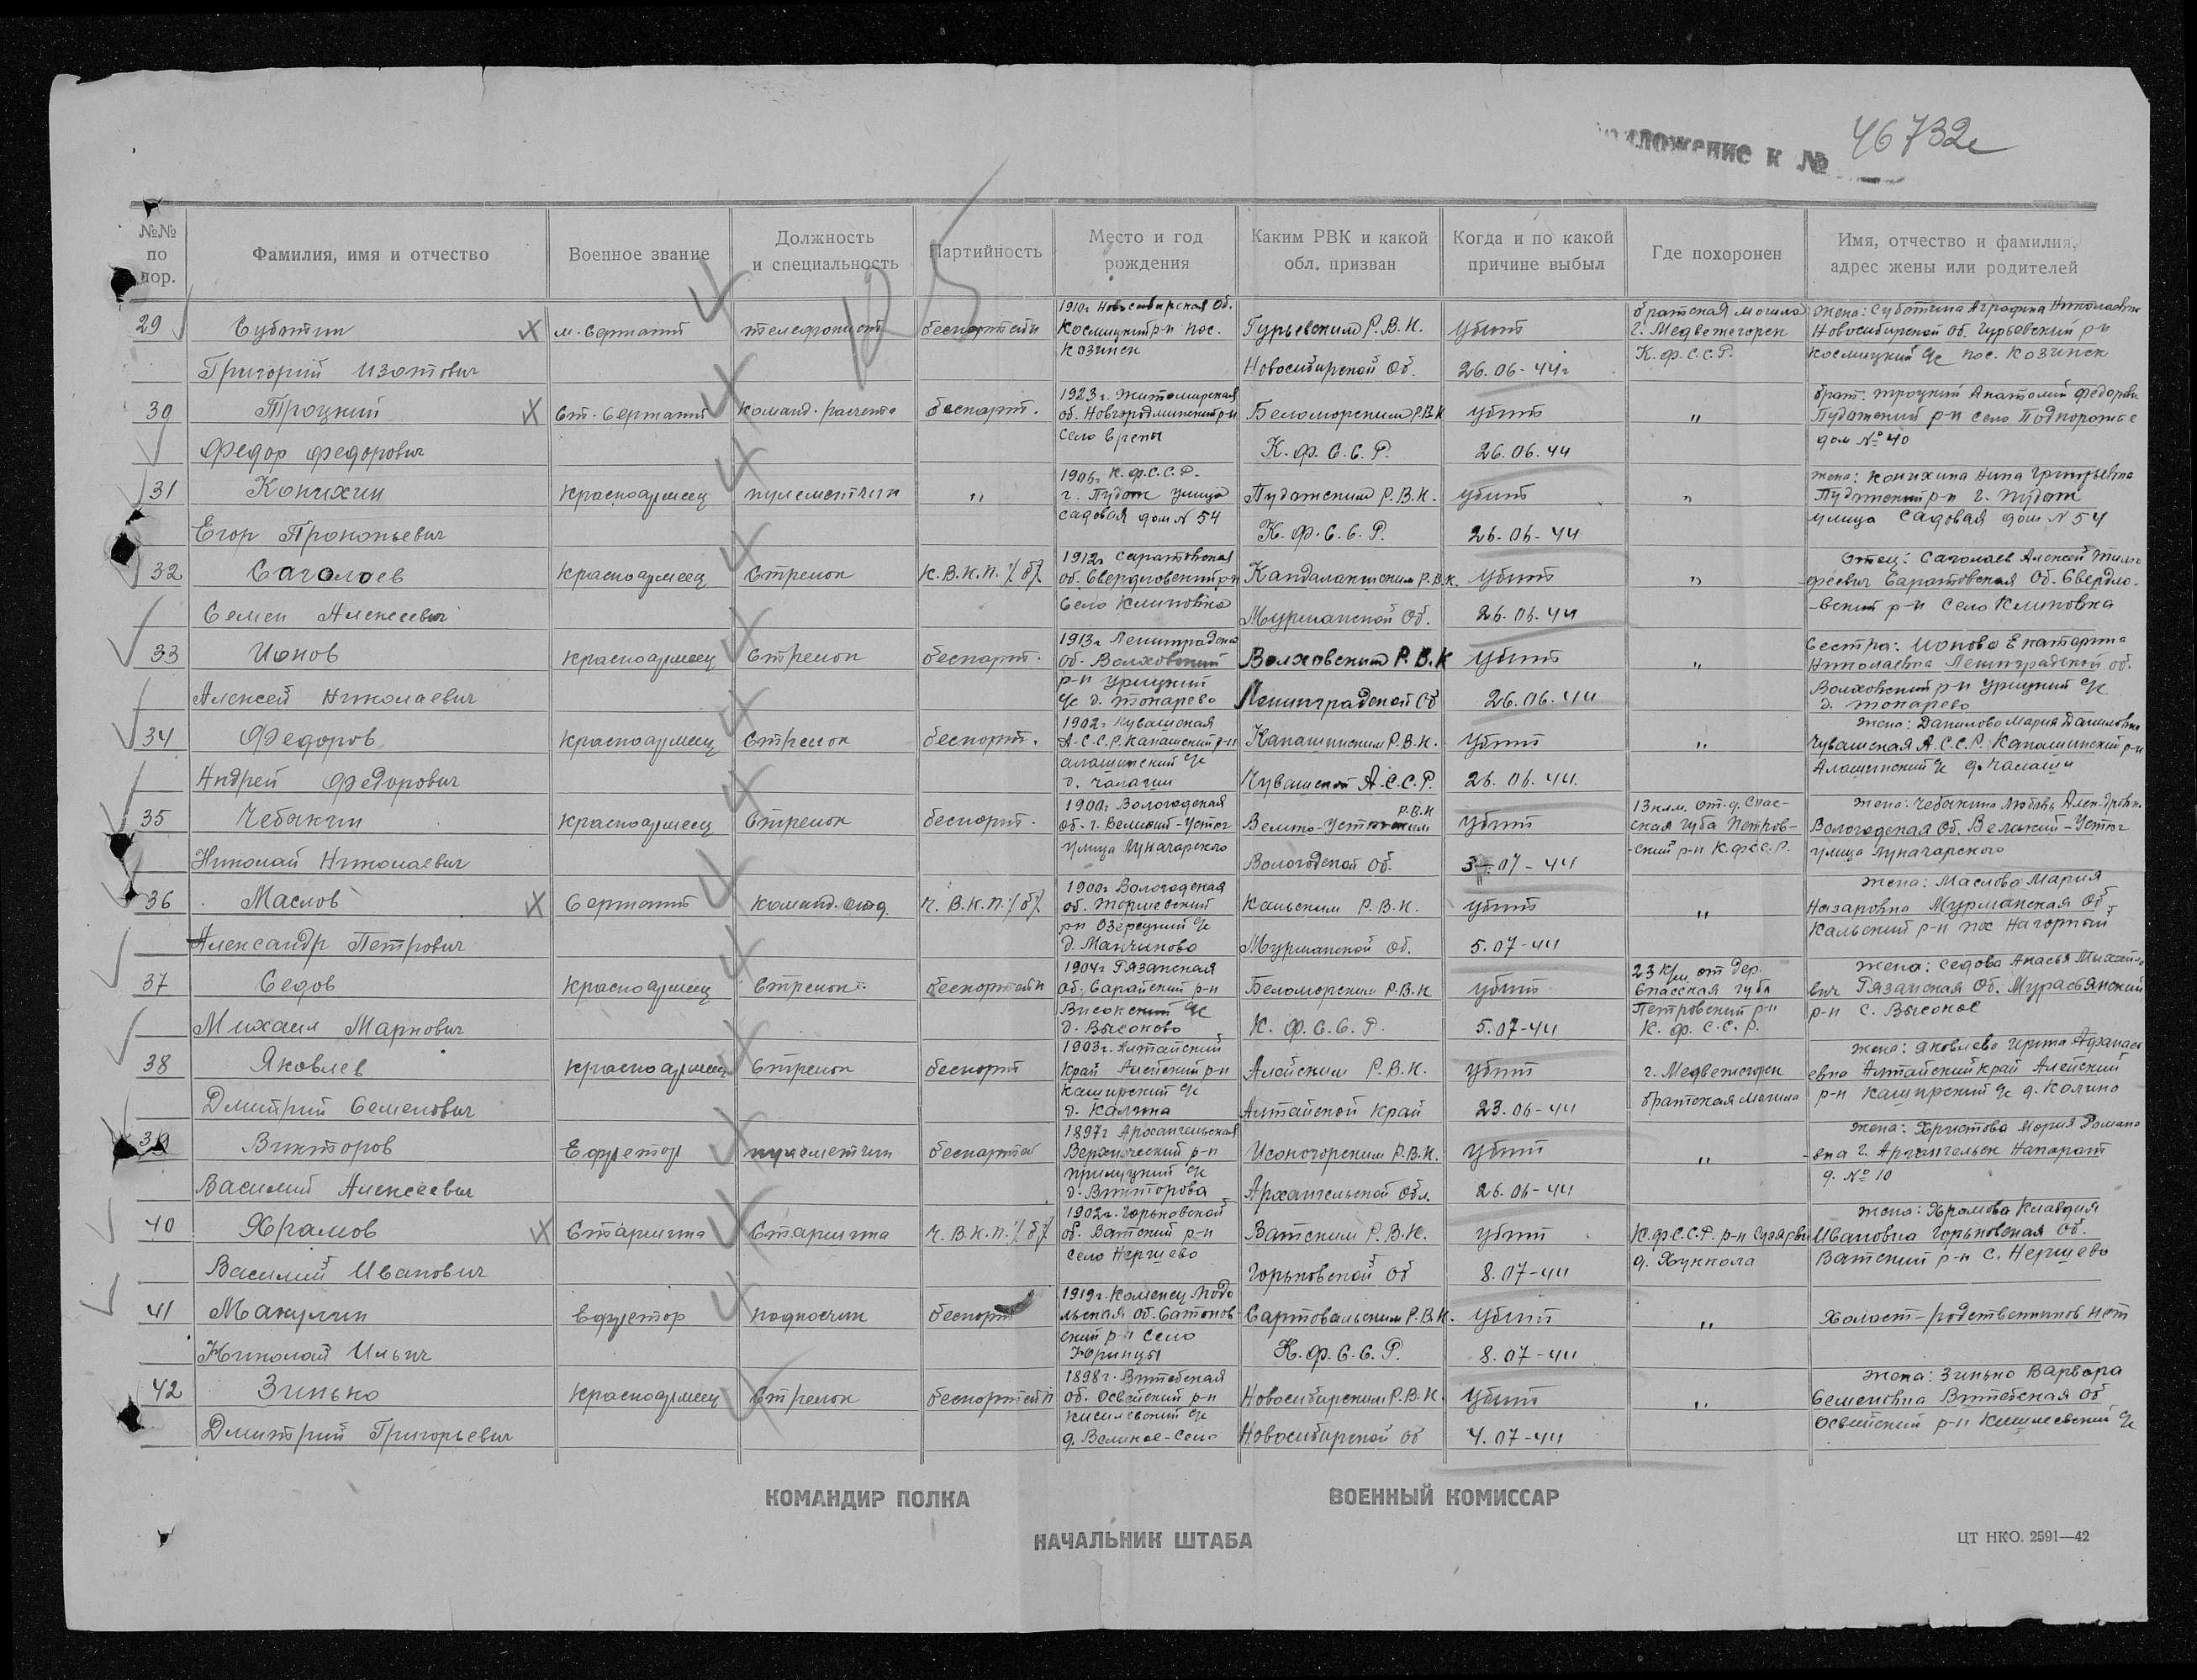 Приложение к № 46732с
№№ по пор.
Фамилия, имя и отчество
Военное звание
Должность и специальность
Партийность
Место и год рождения
Каким РВК и какой обл. призван
Когда и по какой причине выбыл
Где похоронен
Имя, отчество и фамилия, адрес жены или родителей
29
Суботин
Григорий Изотович
м. Сержант
телефонист
беспартейн
1910г Новосибирская Об.
Космицкий р-н пос.
Козинск
Гурьевским Р.В.К.
Новосибирской Об.
убит
26.06-44г
братская могила
г. Медвежегорск
К.Ф.С.С.Р.
жена: Суботина Аграфина Николаевна
Новосибирской об. Гурьевский р-н
Космицкий с/с пос. Козинск
30
Троцкий
Федор Федорович
Ст. Сержант
команд. расчета
беспарт.
1923г. Житомирская
село Врены
Беломорским Р.В.К
К.Ф.С.С.Р.
убит
26.06.44
"
брат: Троцкий Анатолий Федорови
Пудожский р-н село Подпорожье
дом № 40
31
Конихин
Егор Прокопьевич
Красноармеец
пулеметчик
"
1906г К.Ф.С.С.Р.
г. Пудож улица
садовая дом N 54
Пудожским Р.В.К.
К.Ф.С.С.Р.
убит
26.06-44
"
жена: Конихина Нина Григорьевна
Пудожский р-н г. Пудож
улица Садовая дом N 54
32
Саголаев
Семен Алексеевич
Красноармеец
Стрелок
К.В.К.П./б/
1912г Саратовская
об. Свердловский р-н
Село Клиновка
Кандалакшским Р.В.К.
Мурманской Об.
убит
26.06.44
"
Отец: Саголаев Алексей Тимо
феевич Саратовская Об. Свердло-
-вский р-н Село Клиновка
33
Ионов
Алексей Николаевич
Красноармеец
Стрелок
беспарт.
1913г Ленинградска
об. Волховский
р-н Урицкий
с/с д. Токарево
Волховским Р.В.К
Ленинградской Об
убит
26.06.44
"
Сестра: Ионова Екатерина
Николаевна Ленинградской об.
Волховский р-н Урицкий с/с
д. Токарево
34
Федоров
Андрей Федорович
Красноармеец
Стрелок
беспарт.
1902г Чувашская
А.С.С.Р. Канашский р-н
Алашинский с/с
д. Чалаши
Канашинским Р.В.К.
Чувашской А.С.С.Р.
убит
26.06.44.
"
жена: Данилова Мария Даниловна
Чувашская А.С.С.Р. Канашинский р-н
Алашинский с/с д. Чалаши
35
Чебыкин
Николай Николаевич
Красноармеец
Стрелок
беспарт.
1900г Вологодская
об. г. Великий-Устюг
улица Луначарского
Велико-Устюгским Р.В.К
Вологодской Об.
убит
3-07-44
13 клм. от д. Спас-
ская Губа Петров-
-ский р-н К.Ф.С.С.Р.
жена: Чебыкина Любовь Алек-дровн.
Вологодская Об. Великий-Устюг
улица Луначарского
36
Маслов
Александр Петрович
Сержант
команд. отд.
Ч.В.К.П./б/
1900г Вологодская
р-н Озерецкий с/с
д. Манчиково
Кольским Р.В.К.
Мурманской Об.
убит
5.07-44
"
жена: Маслова Мария
Назаровна Мурманская Об.
Кольский р-н пос Нагорный
37
Седов
Михаил Маркович
Красноармеец
Стрелок
беспартейн
1904г Рязанская
об. Сарайский р-н
Високский с/с
д. Высоково
Беломорским Р.В.К
К.Ф.С.С.Р.
убит
5.07-44
23 клм от дер.
Спасская Губа
Петровский р-н
К.Ф.С.С.Р.
жена: Седова Анасья Михайло
вич Рязанская Об. Мурасьянский
р-н с. Высокое
38
Яковлев
Дмитрий Семенович
Красноармеец
Стрелок
беспорт
1903г. Алтайский
край Алейский р-н
Каширский с/с
д. Калина
Алейским Р.В.К.
Алтайской край
убит
23.06-44
г. Медвежегорск
братская могила
жена: Яковлева Ирина Афанась
евна Алтайский край Алейский
р-н Каширский с/с д. Калина
39
Викторов
Василий Алексеевич
Ефрейтор
пулеметчик
беспартей
1897г Архангельская
р-н
Прилуцкий с/с
д. Викторова
Исакогорским Р.В.К.
Архангельской Обл.
убит
26.06-44
"
жена: Христова Мария Романо
-вна г. Архангельск
д. № 10
40
Храмов
Василий Иванович
Старшина
Старшина
Ч.В.К.П./б/
1902г. Горьковской
об. Ватский р-н
село Нершево
Ватским Р.В.К.
Горьковской Об
убит
8.07-44
К.Ф.С.С.Р. р-н Суоярви
д. Хуккола
жена: Храмова Клавдия
Ивановна Горьковская Об.
Ватский р-н с. Нершево
41
Макулин
Николай Ильич
Ефрейтор
подносчик
беспорт
1919г. Каменец Подо
льская об. Сатонов-
ский р-н село
Юринцы
Сартовальским Р.В.К.
К.Ф.С.С.Р.
убит
8.07-44
"
Холост - родственников нет
42
Зинько
Дмитрий Григорьевич
Красноармеец
Стрелок
беспортейн
1898г. Витебская
об. Освейский р-н
Кисилевский с/с
д. Великое-Село
Новосибирским Р.В.К.
Новосибирской об
убит
4.07-44
"
жена: Зинько Варвара
Семеновна Витебская Об
Освейский р-н Кисилевский с/с
КОМАНДИР ПОЛКА
ВОЕННЫЙ КОМИССАР
НАЧАЛЬНИК ШТАБА
ЦТ НКО. 2591—42